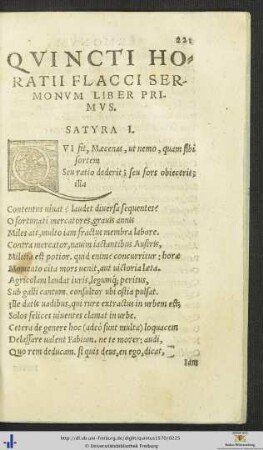 221
QVINCTI HO-
RATII FLACCI SER-
MONVM LIBER PRI-
MVS.
SATYRA I.
QVI fit, Mecœnas, ut nemo, quem sibi
sortem
Seu ratio dederit, seu fors obiecerit,
illa
Contentus uiuat? laudet diuersa sequentes?
O fortunati mercatores, grauis annis
Miles ait, multo iam fractus membra labore.
Contra mercator, nauim iactantibus Austris,
Militia est potior. quid enim? concurritur: horæ
Momento cita mors uenit, aut uictoria læta.
Agricolam laudat iuris, legumq́; peritus,
Sub galli cantum consultor ubi ostia pulsat.
Ille datis uadibus, qui rure extractus in urbem est,
Solos felices uiuentes clamat in urbe.
Cetera de genere hoc (adeò sunt multa) loquacem
Delassare ualent Fabium. ne te morer; audi,
Quo rem deducam. si quis deus, en ego, dicat,
Iam
http://dl.ub.uni-freiburg.de/diglit/quintus1570/0225
© Universitätsbibliothek Freiburg
Baden-Württemberg